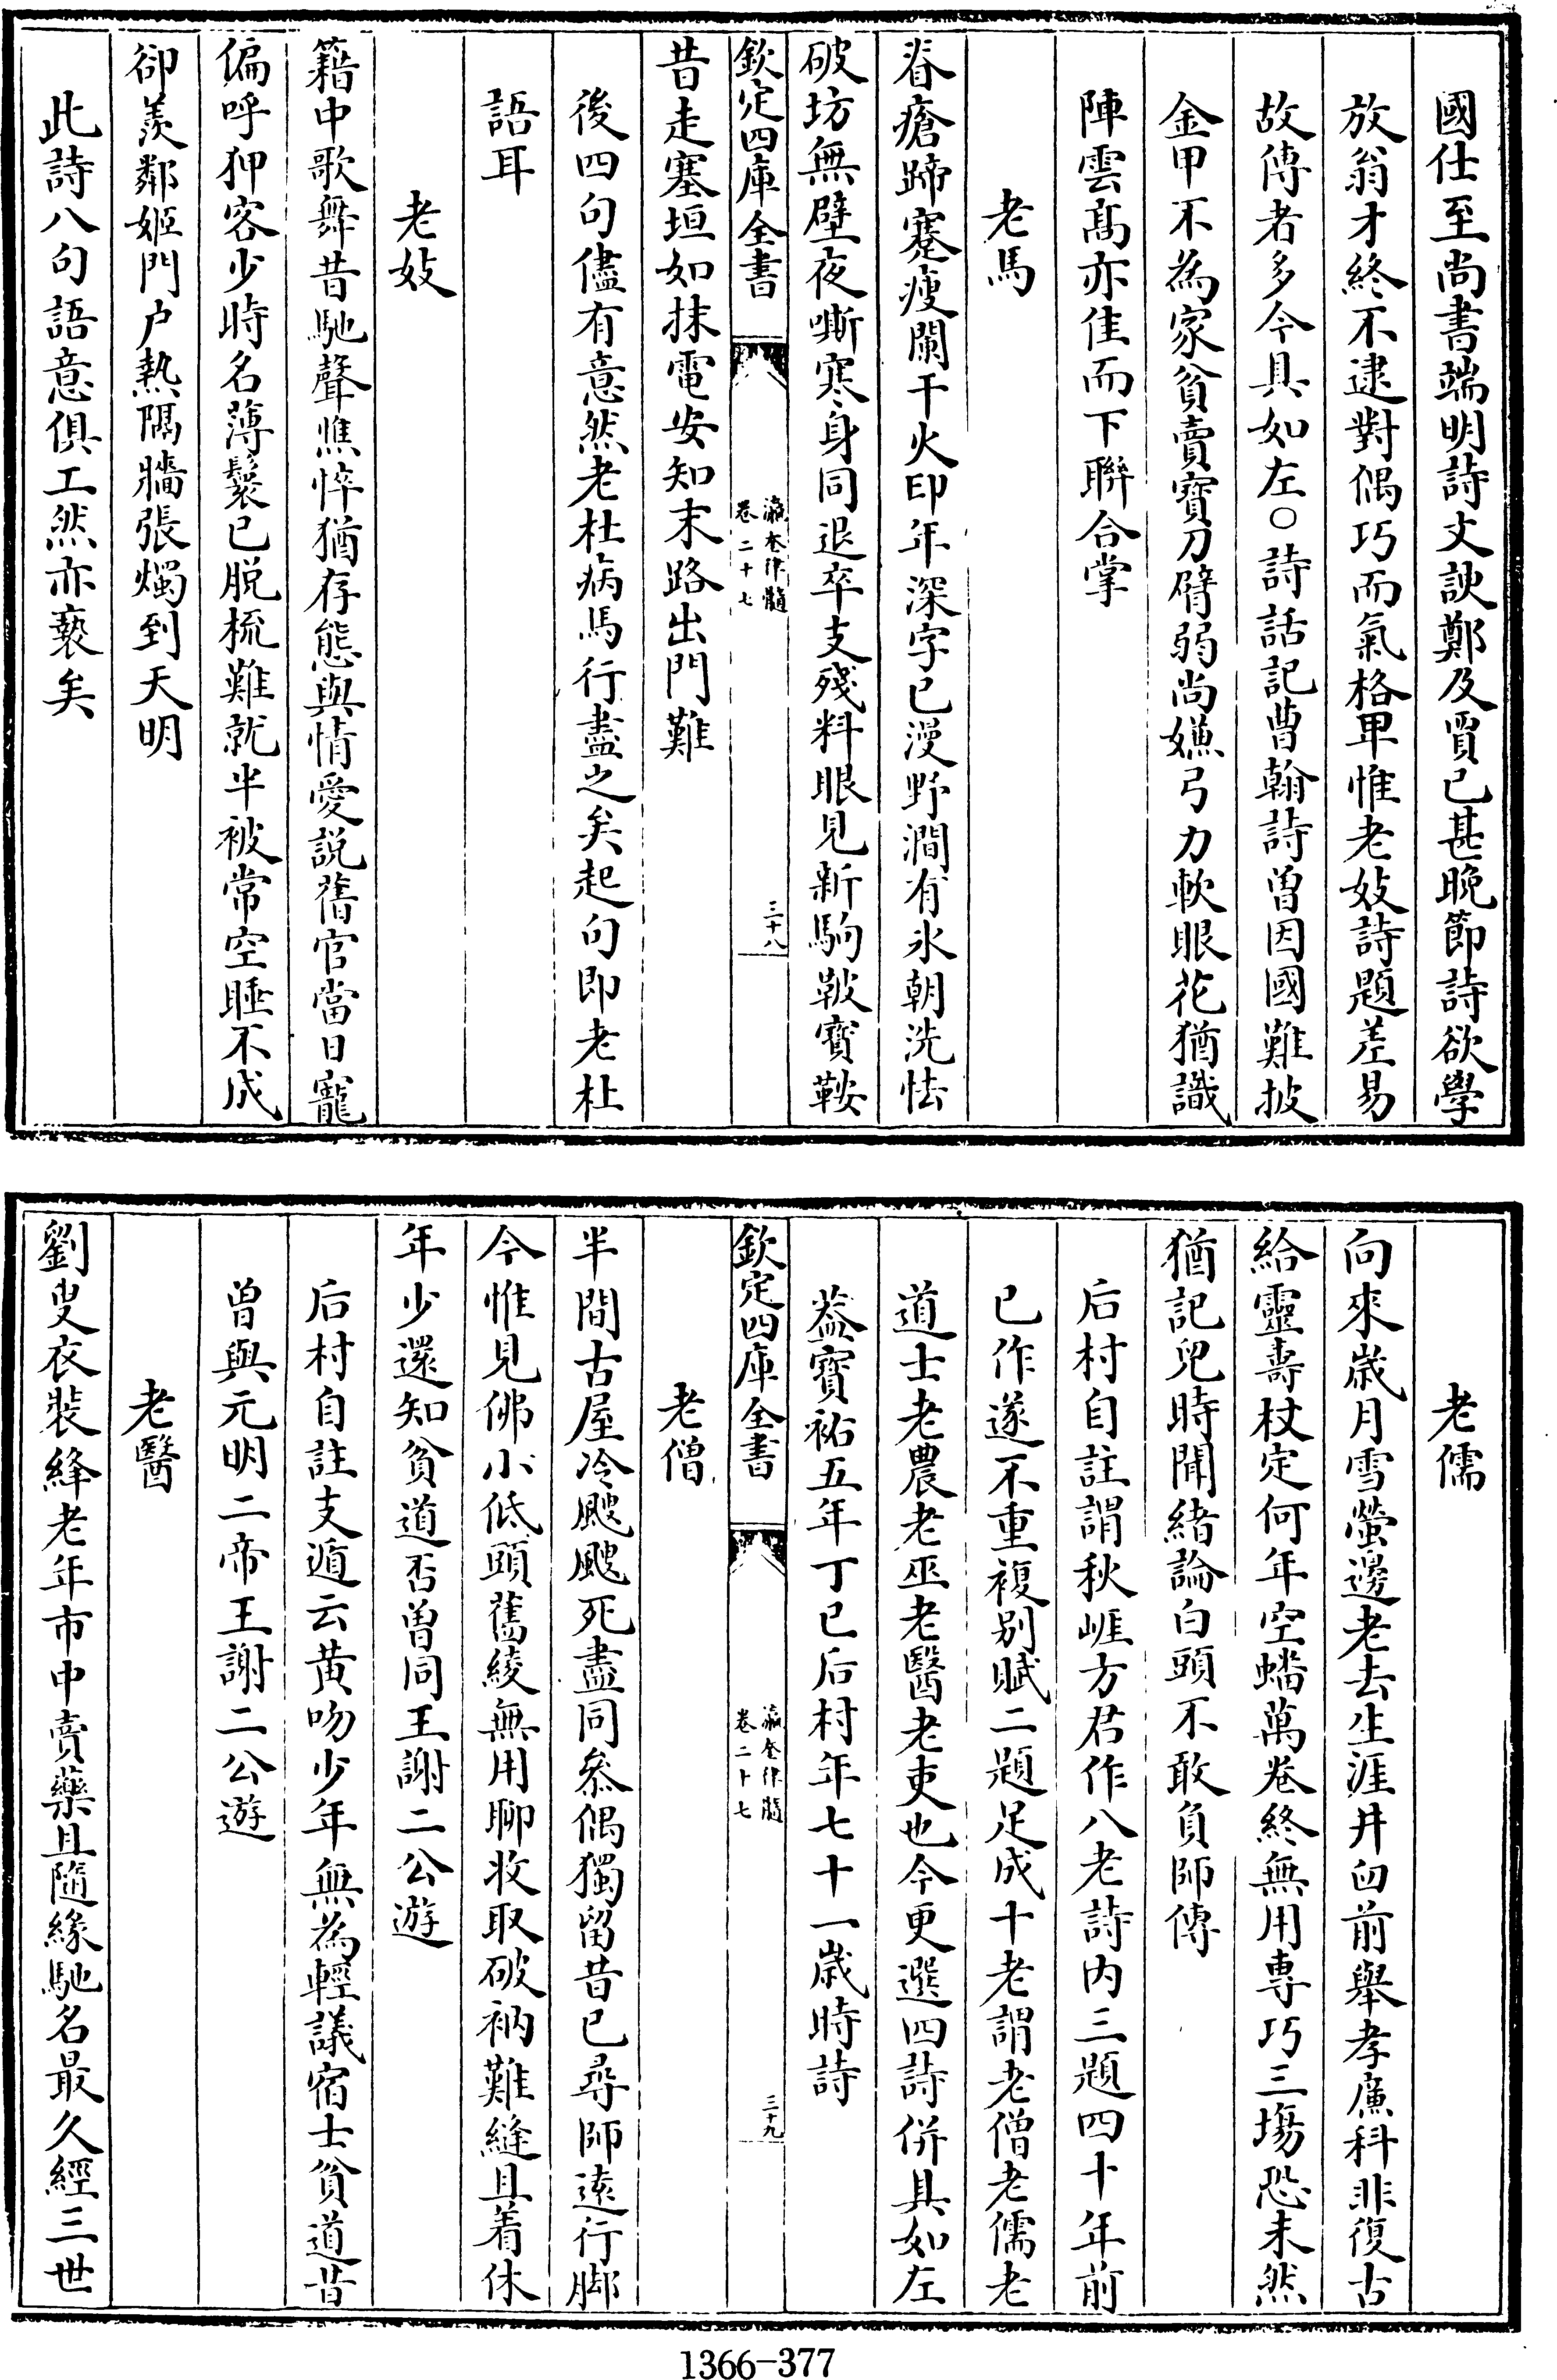 國仕至尚書端明詩文諛鄭及賈已甚晚節詩欲學
放翁才終不逮對偶巧而氣格卑惟老妓詩題差易
故傳者多今具如左○詩話記曹翰詩曾因國難披
金甲不為家貧賣寳刀臂弱尚嫌弓力軟眼花猶識
陣雲髙亦佳而下聯合掌
老馬
脊瘡蹄蹇瘦闌干火印年深字已漫野澗有氷朝洗怯
破坊無壁夜嘶寒身同退卒支殘料眼見新駒鞁寳鞍
欽定四庫全書
瀛奎律髓
卷二十七
三十八
昔走塞垣如抹電安知末路出門難
後四句儘有意然老杜病馬行盡之矣起句即老杜
語耳
老妓
籍中歌舞昔馳聲憔悴猶存態與情愛説舊官當日寵
偏呼狎客少時名薄鬟已脱梳難就半被常空睡不成
卻羨鄰姬門户熱隔牆張燭到天明
此詩八句語意俱工然亦䙝矣
老儒
向來歳月雪螢邊老去生涯井臼前舉孝㢘科非復古
給靈壽杖定何年空蟠萬卷終無用専巧三塲恐未然
猶記兒時聞緒論白頭不敢負師傳
后村自註謂秋崕方君作八老詩内三題四十年前
已作遂不重複别賦二題足成十老謂老僧老儒老
道士老農老巫老醫老吏也今更選四詩併具如左
葢寳祐五年丁巳后村年七十一歳時詩
欽定四庫全書
瀛奎律髓
卷二十七
三十九
老僧
半間古屋冷颼颼死盡同叅偶獨留昔已尋師逺行脚
今惟見佛小低頭舊綾無用聊收取破衲難縫且着休
年少還知貧道否曽同王謝二公遊
后村自註支遁云黄吻少年無為輕議宿士貧道昔
曽與元明二帝王謝二公遊
老醫
劉叟衣裝絳老年市中賣藥且隨緣馳名最久經三世
1366-377